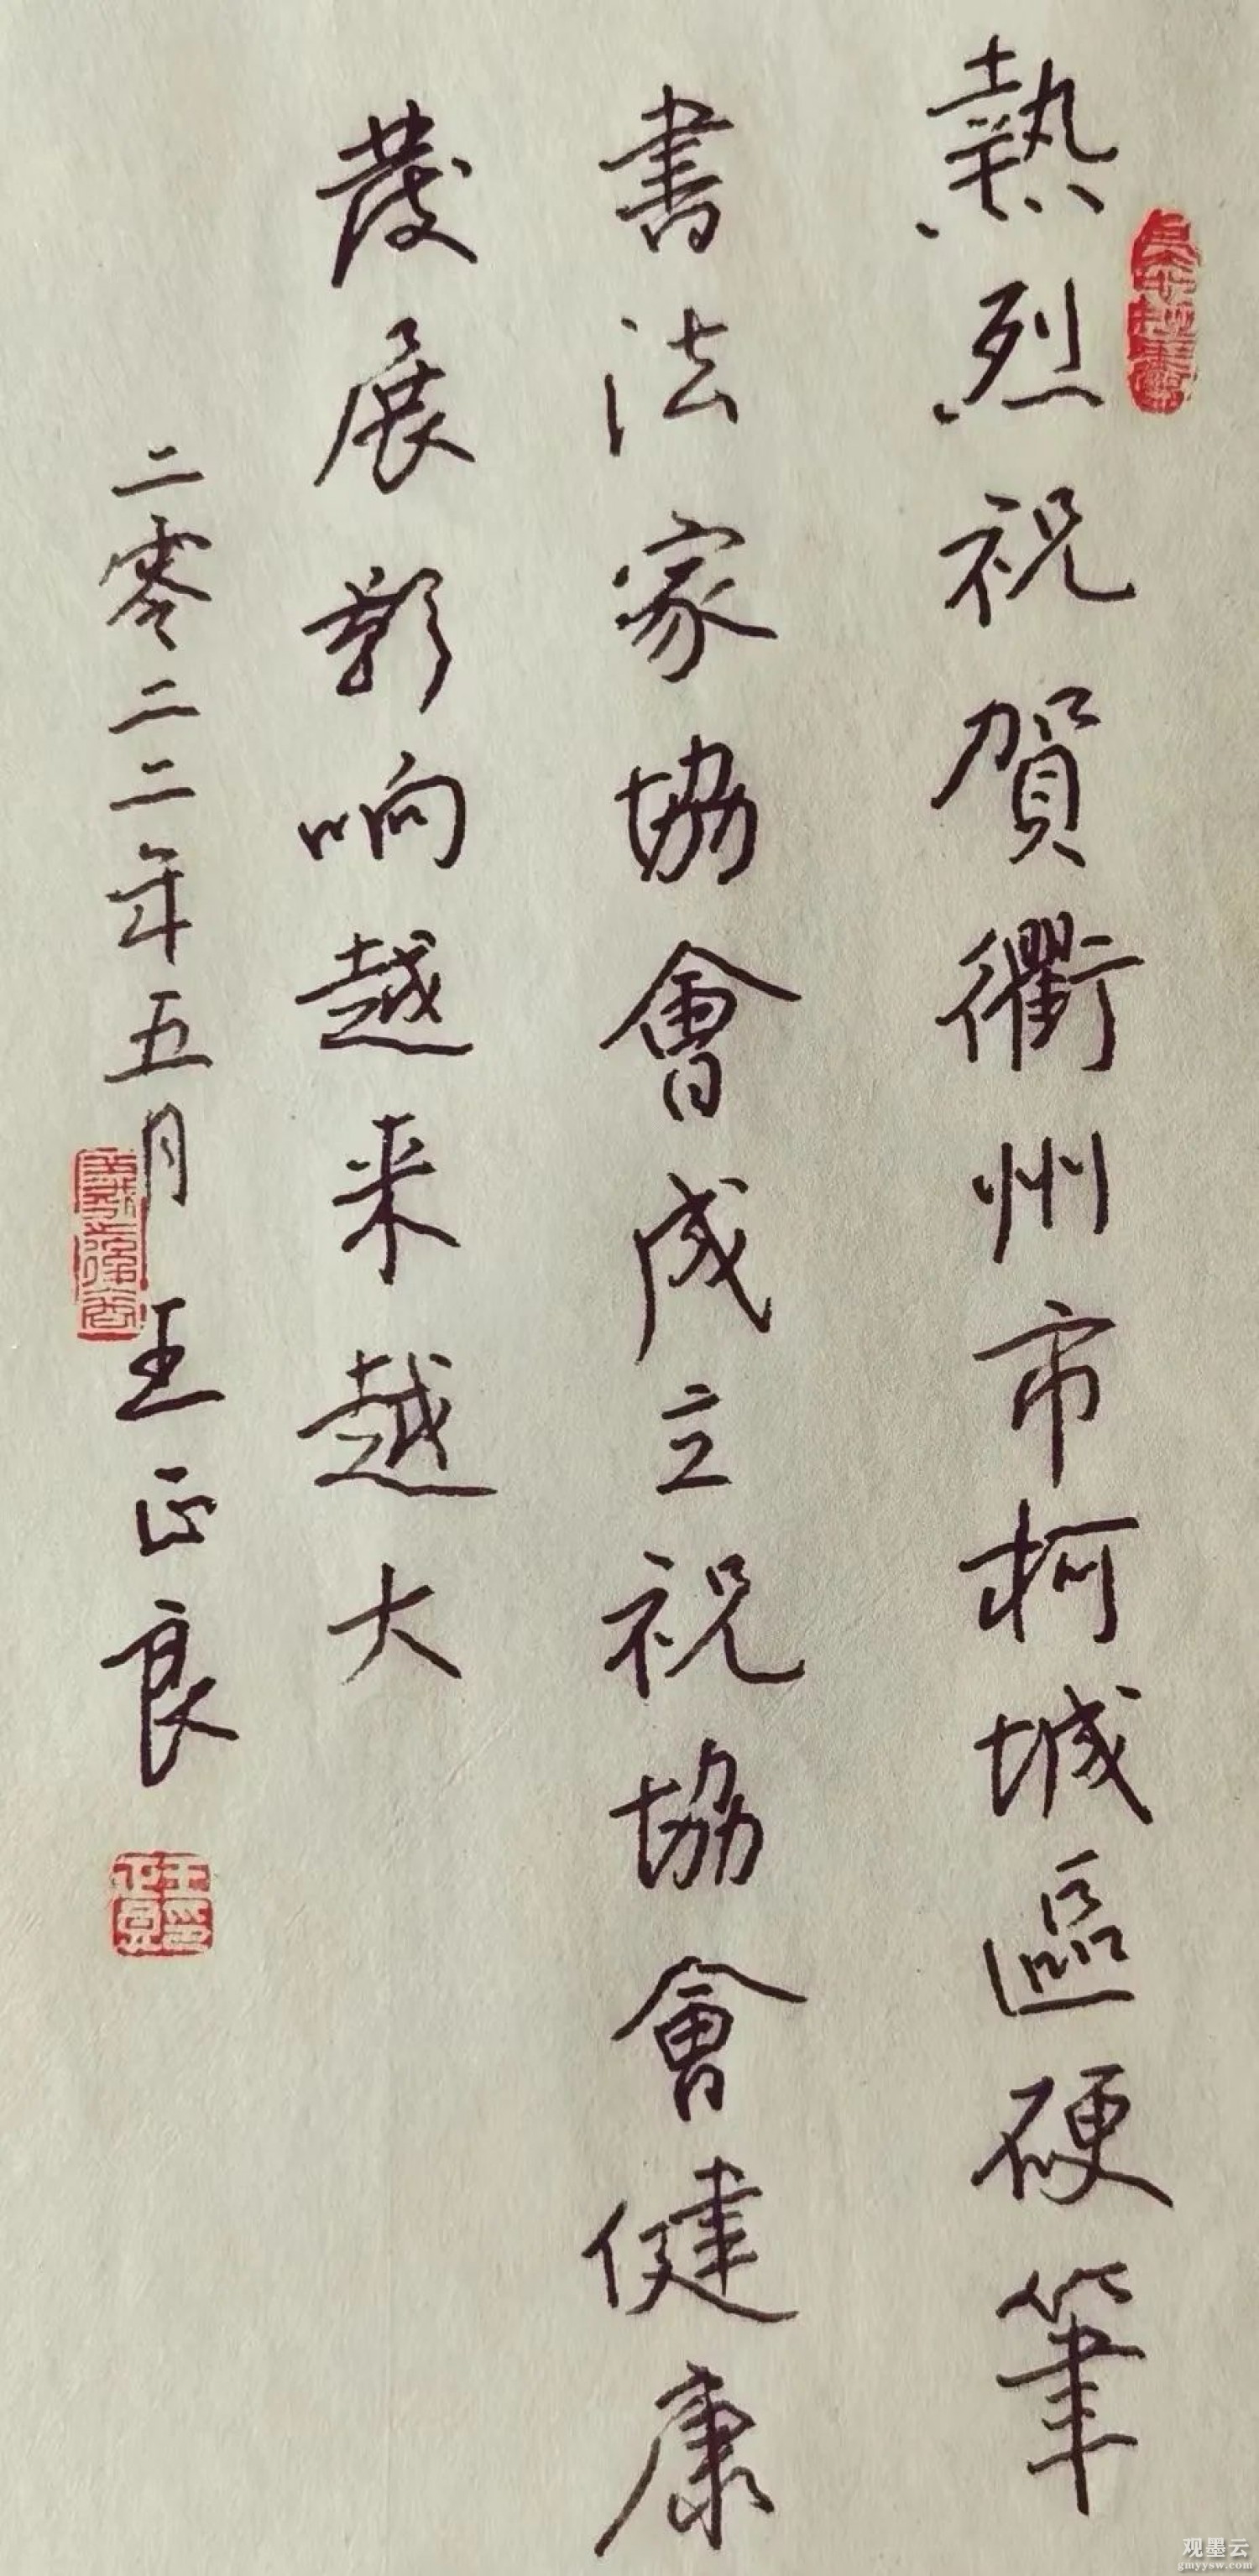 熱烈祝賀衢州市柯城區硬筆
書法家協會成立祝協會健康
發展影响越来越大
二零二二年五月王正良
观墨云
gmyysw.com